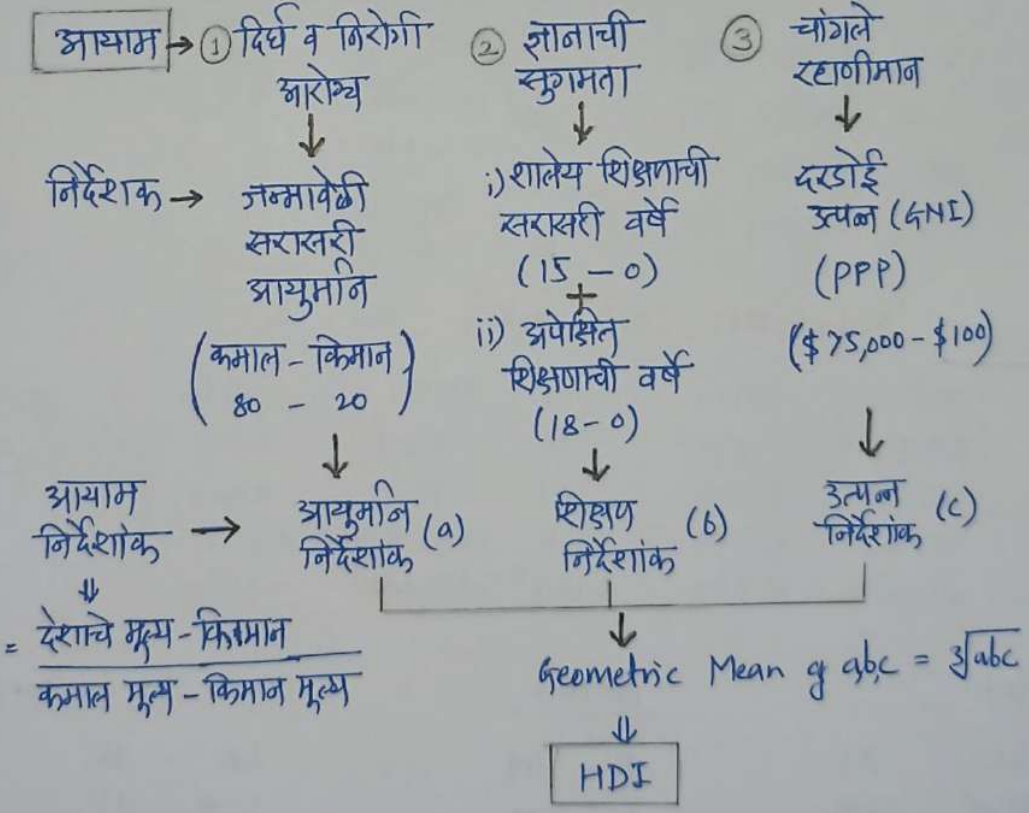 आयाम → ① दिर्घ व निरोगी आरोग्य
② ज्ञानाची सुगमता
③ चांगले रहाणीमान
निर्देशक → जन्मावेळी
सरासरी
आयुर्मान
(कमाल - किमान)
80 - 20
i) शालेय शिक्षणाची
सरासरी वर्षे
(15 - 0)
+
ii) अपेक्षित
शिक्षणाची वर्षे
(18 - 0)
दरडोई
उत्पन्न (GNI)
(PPP)
($75,000 - $100)
आयाम
निर्देशांक →
आयुर्मान
निर्देशांक (a)
शिक्षण
निर्देशांक (b)
उत्पन्न
निर्देशांक (c)
= देशाचे मूल्य - किमान
कमाल मूल्य - किमान मूल्य
Geometric Mean of a,b,c = ∛abc
HDI